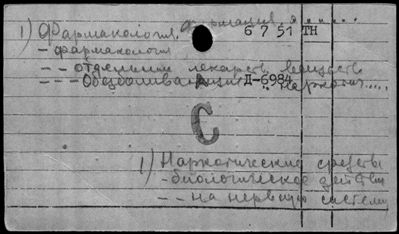 1) Фармакология, Фармация, я.....
6 7 51 TH
- фармакология
- - отдельных лекарств. веществ
- - - Обезболивающих и наркотич.....
А II-6984
С
1) Наркотические средства
- биологическое действие
- - на нервную систему